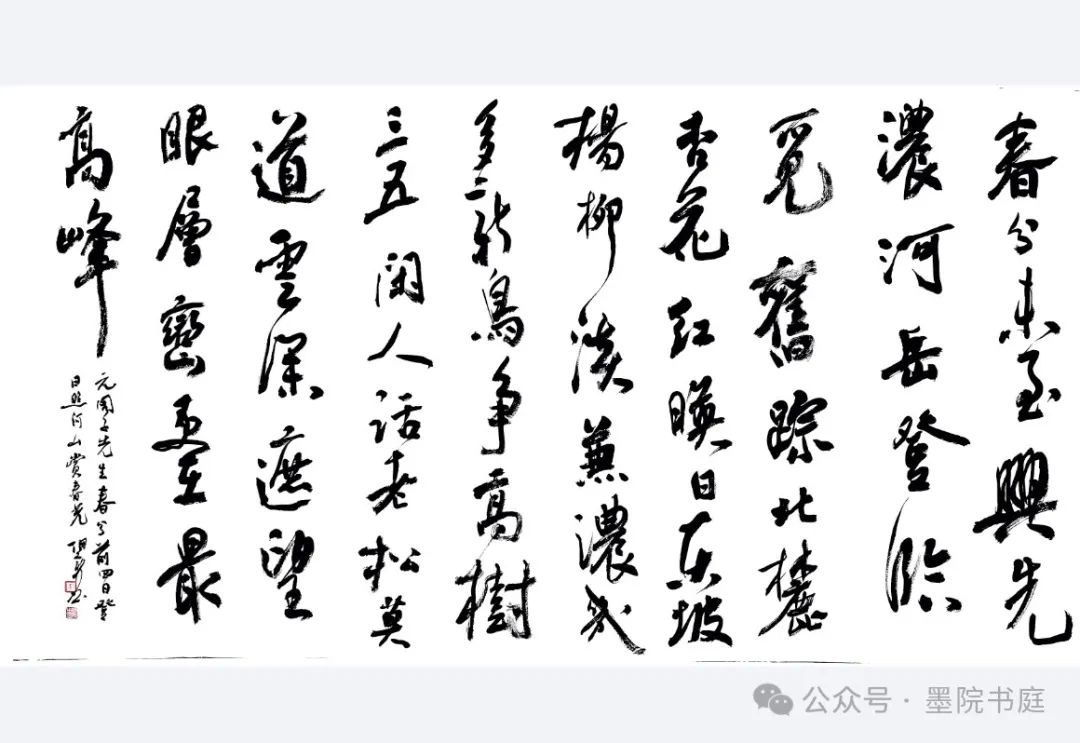 春分未至興先
濃河岳登臨
覓舊踪北麓
杏花紅暎日東坡
楊柳淡兼濃幾
多新鳥爭高樹
三五閑人話老松莫
道雲深遮望
眼層巒更在最
高峰
先生春分前四日登
日照河山賞春光
公众号·墨院书庭